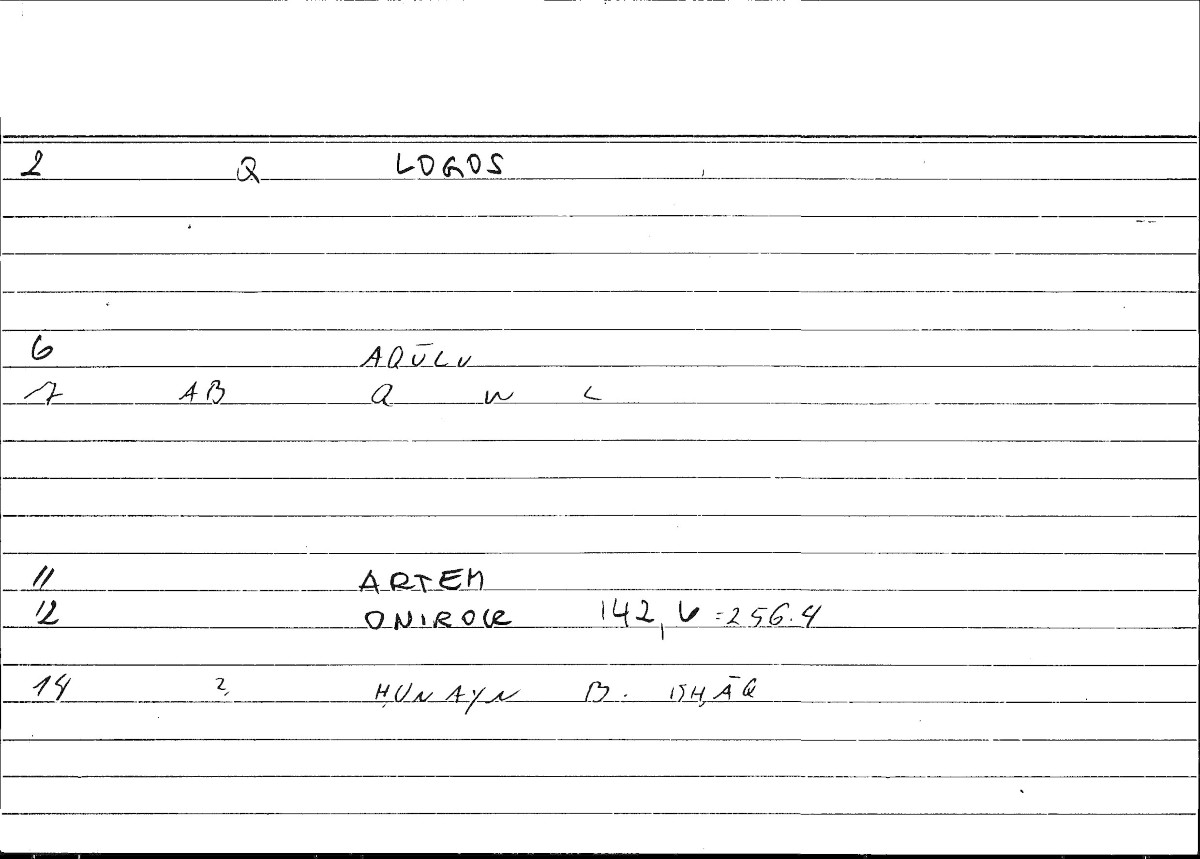 2 Q LOGOS
6 AQŪLU
7 AB Q W L
11 ARTEM
12 ONIROCR 142,6=256.4
14 2, ḤUNAYN B. ISḤĀQ